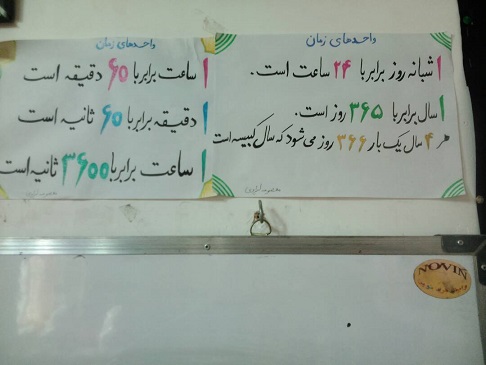 واحدهای زمان
۱ شبانه روز برابر با ۲۴ ساعت است.
۱ سال برابر با ۳۶۵ روز است.
هر ۴ سال یک بار ۳۶۶ روز می شود که سال کبیسه است
واحدهای زمان
۱ ساعت برابر با ۶۰ دقیقه است
۱ دقیقه برابر با ۶۰ ثانیه است
۱ ساعت برابر با ۳۶۰۰ ثانیه است
NOVIN